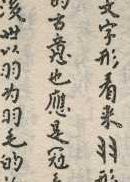 文字形看来羽形
的古意也應是冠
後世以羽为羽毛的